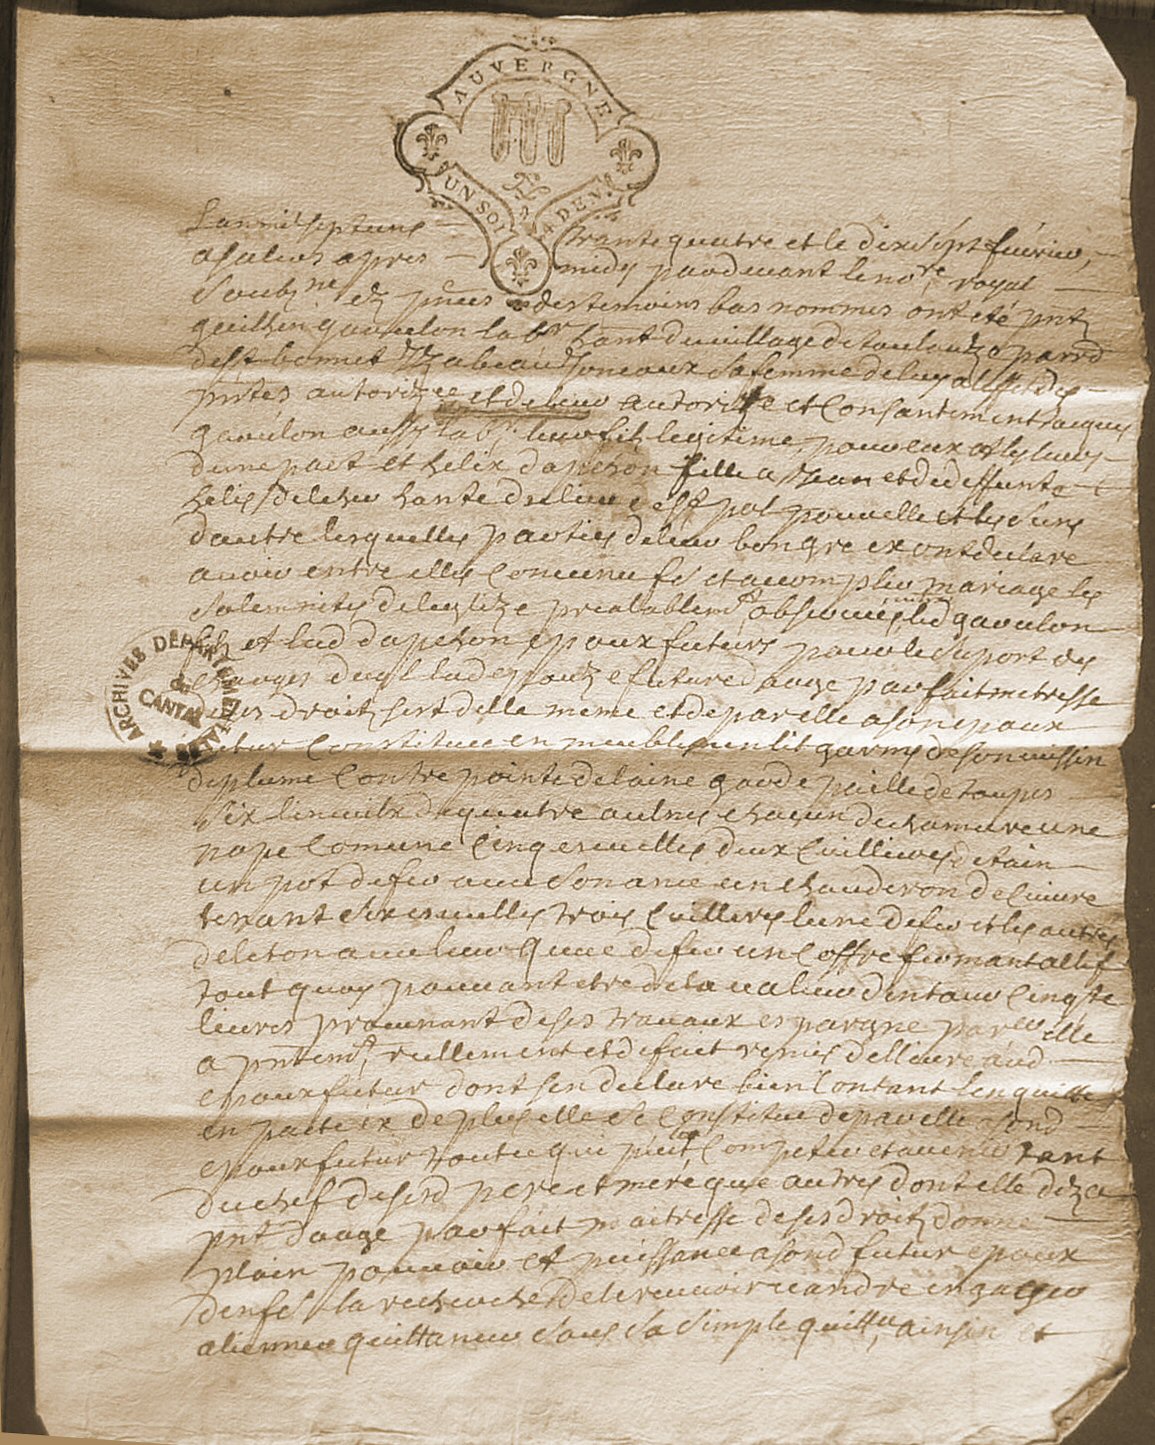 AUVERGNE
UN SOL 4 DEN.
L'an mil sept cens trante quatre et le dix sept feúrier,
a salers apres midy pardevant le nore royal
soubzne ez pnces des temoins bas nommes ont eté pntz
guilhen gaculon labr hant du village de
de st bonnet Izabeau sa femme de luy
autorizée et de leur autorizée et consantement Jacques
gaculon aussy labr leur filz legitime, pour eux et les leurs
dune part et helix dapchon fille a Jean et de deffunte
helis hante du lieu de st pol pour elle et les siens
dautre lesquelles parties de leur bon gre ont declare
avoir entre elles convenu fé et acomplir mariage les
solemnites de leglize prealablemt observées led gaculon
filz et lad dapchon epoux futurs pour le suport des
charges duql lad epouze future dauge parfait metresse
de ses droitz sest delle meme et de par elle a son epoux
futur constituée en meubles un lit garny de son cuissin
de plume contre pointe de laine garde paille de toupes
six linceulx de quatre aulnes chacun de chamure une
nape comune cinq ecuelles deux cuillieres detain
un pot de fer avec son ance un chauderon de cuivre
tenant six ecuelles trois cuilleres lune de fer et les autres
de leton avec leur queue de fer un coffre fermant a clef
tout quoy pouvant etre de la valeur dentour cinqte
livres provenant de ses travaux espargne par elle
a pntemt reellement et de fait remis delliuré aud
epoux futur dont sen declare bien contant len quitte
en pacte ex de plus elle se constitue de par elle a sond
epoux futur tout ce qui peut competer et avenir tant
du chef de sesd pere et mere que autres dont elle deza
pnt dauge parfait maitresse de ses droitz donne
plain pouvoir et puissance a sond futur epoux
den fe la recherche de le recevoir
aliener quittancer sous sa simple quittce, ainsin et
ARCHIVES DEPARTEMENTALES
du
CANTAL